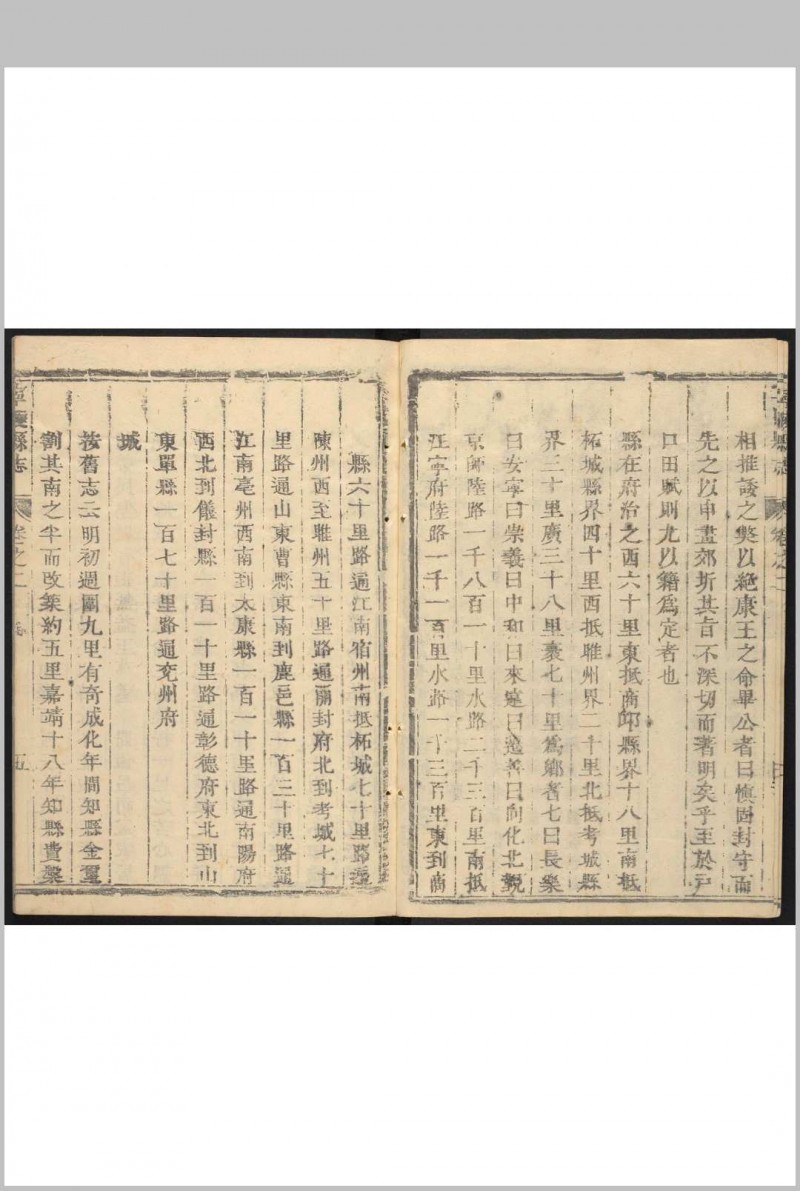 寧陵縣志
卷之二
相推諉之獘以絶康王之命畢公者曰愼固封守而
先之以申畫郊圻其言不深切而著明矣乎至於戸
口田賦則尤以籍爲定者也
縣在府治之西六十里東抵商邱縣界十八里南抵
柘城縣界四十里西抵睢州界二十里北抵考城縣
界三十里廣三十八里袤七十里爲鄉者七曰長樂
曰安寧曰崇義曰中和曰來遠曰遷善曰向化北觀
京師陸路一千八百一十里水路二千三百里南抵
江寧府陸路一千一百里水路一千三百里東到商
縣六十里路通江南宿州南抵柘城七十里路通
陳州西至睢州五十里路通開封府北到考城七十
里路通山東曹縣東南到鹿邑縣一百三十里路通
江南亳州西南到太康縣一百一十里路通南陽府
西北到儀封縣一百一十里路通彰德府東北到山
東單縣一百七十里路通兖州府
城
按舊志云明初週圍九里有奇成化年間知縣金璽
割其南之半而改築約五里嘉靖十八年知縣費槃
寧陵縣志
卷之二
五